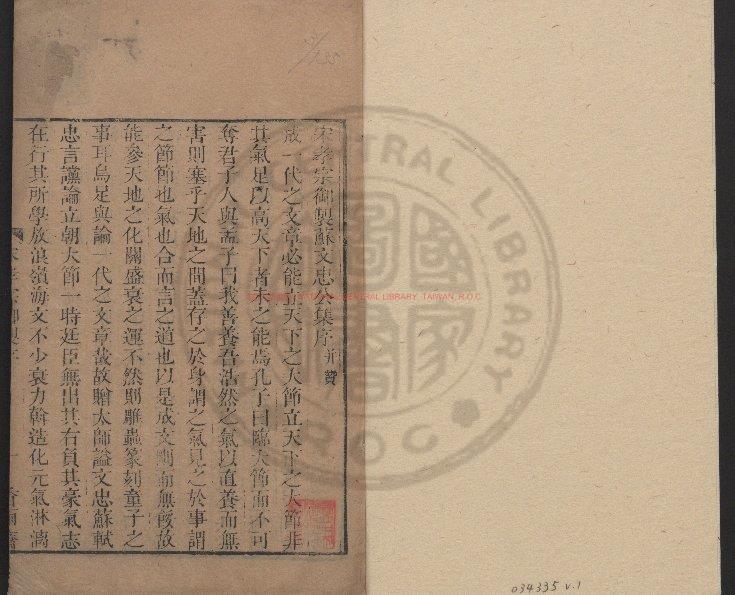 宋孝宗御製蘇文忠公集序并贊
成一代之文章必能立天下之大節立天下之大節非
其氣足以高天下者未之能焉孔子曰臨大節而不可
奪君子人與孟子曰我善養吾浩然之氣以直養而無
害則塞乎天地之間蓋存之於身謂之氣見之於事謂
之節節也氣也合而言之道也以是成文剛而無餒故
能參天地之化關盛衰之運不然則雕蟲篆刻童子之
事耳烏足與論一代之文章哉故贈太師諡文忠蘇軾
忠言讜論立朝大節一時廷臣無出其右負其豪氣志
在行其所學放浪嶺海文不少衰力斡造化元氣淋漓
CENTRAL LIBRARY
R.O.C
NATIONAL CENTRAL LIBRARY, TAIWAN, R.O.C
034335 v.1